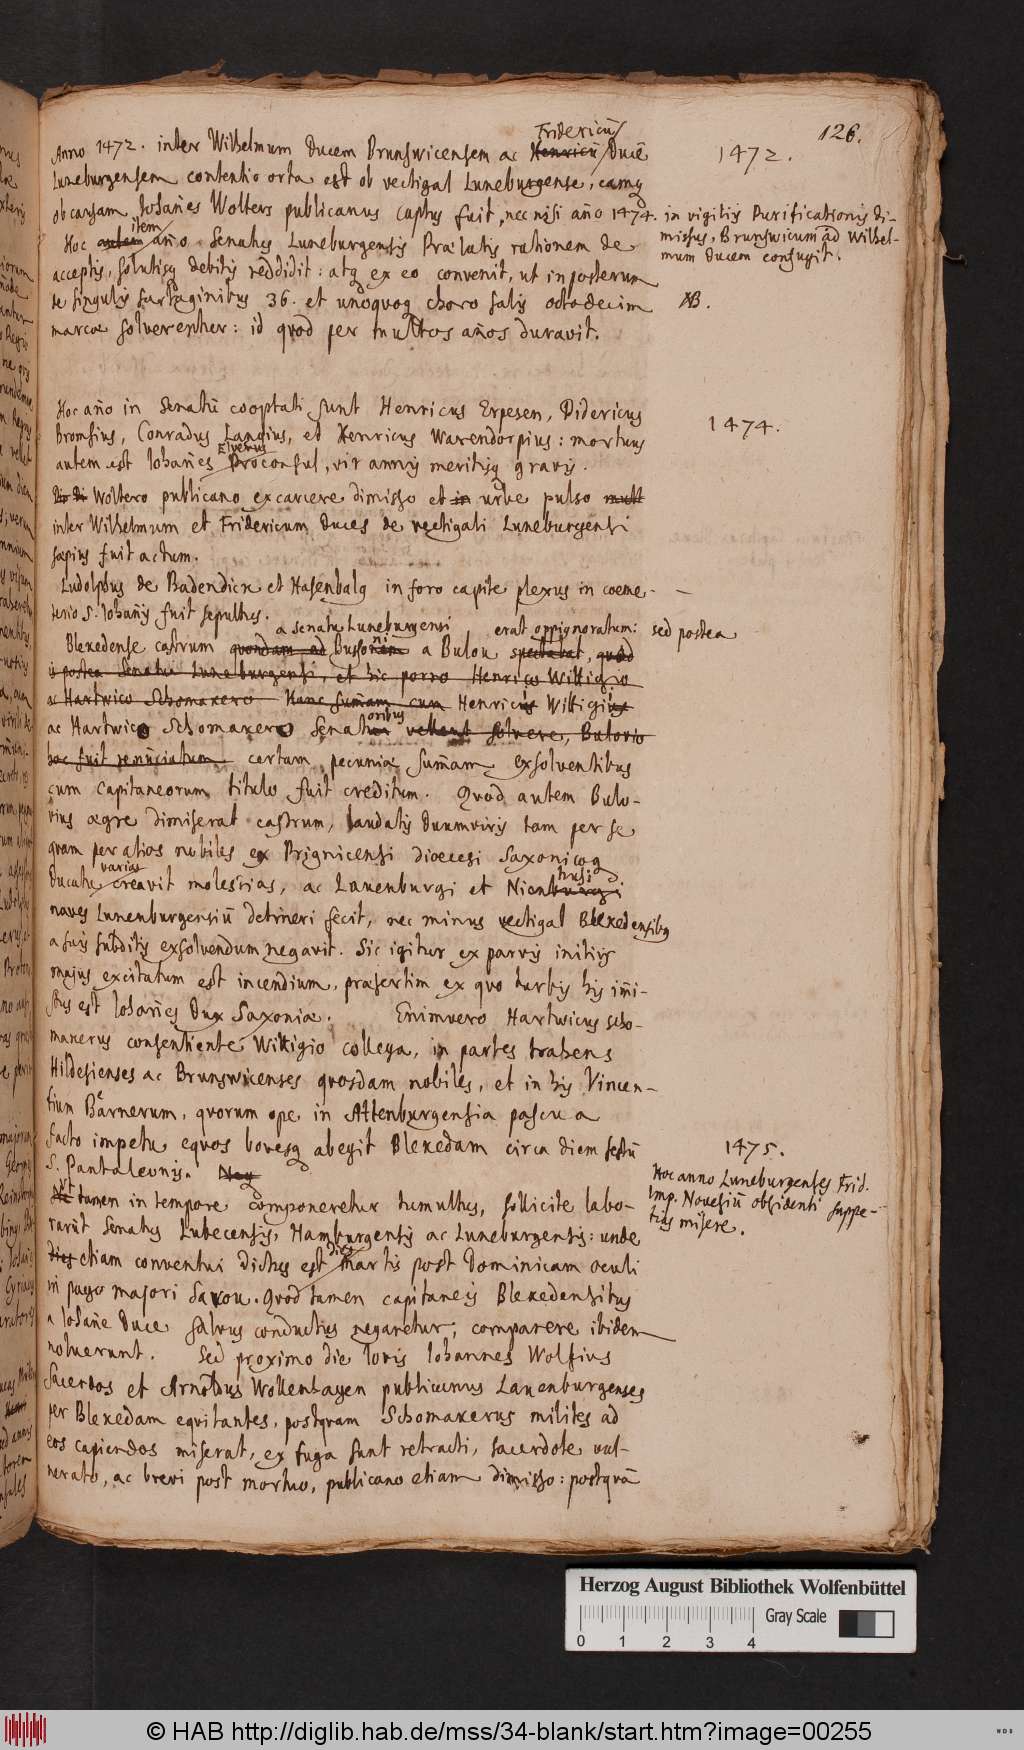 126.
Fridericū
Anno 1472. inter Wilhelmum Ducem Brunswicensem ac Henricū Ducē
1472.
Luneburgensem contentio orta est ob vectigal Luneburgense, eamq
ob causam Johanes Wolters publicanus captus fuit, nec nisi año 1474. in vigiliis Purificationis di-
missus, Brunswicum ad Wilhel-
mum Ducem confugit.
item
Hoc autem año Senatus Luneburgensis Prælatis rationem de
acceptis, solutisq debitis reddidit: atq ex eo convenit, ut in posterum
de singulis sartaginibus 36. et unoquoq choro salis octodecim
NB.
marcæ solverentur: id quod per multos años duravit.
Hoc año in Senatū cooptati sunt Henricus Erpesen, Didericus
1474.
Bromsius, Conradus Langius, et Henricus Warendorpius: mortuus
Elverus
autem est Johanes Proconsul, vir annis meritisq gravis.
Woltero publicano ex carcere dimisso et in urbe pulso mult
inter Wilhelmum et Fridericum Duces de vectigali Luneburgensi
sæpius fuit actum.
Ludolphus de Badendick et Hasenbalg in foro capite plexus in coeme-
terio S. Johañis fuit sepultus.
a senatu Luneburgensi erat oppignoratum: sed postea
Blekedense castrum quondam ad Bussonem a Bulou spectabat, quod
is postea Senatui Luneburgensi, et hic porro Henrico Wittigio
ac Hartwico Schomakero Hanc sumam cum Henricus Wittigius
oribus
ac Hartwico Schomakero Senatui vellent solvere, Bulovio
hoc fuit renunciatum certam pecuniæ sumam exsolventibus
cum Capitaneorum titulo fuit creditum. Quod autem Bulo-
vius ægre dimiserat castrum, laudatis Duumviris tam per se
quam per alios nobiles ex Prignicensi dioecesi Saxonicoq
varias
Ducatu creavit molestias, ac Lauenburgi et Nienburgi
naves Lunenburgensiū detineri fecit, nec minus vectigal Blekedensibq
a suis subditis exsolvendum negavit. Sic igitur ex parvis initiis
majus excitatum est incendium, præsertim ex quo turbis his imi-
xtus est Johañes Dux Saxoniæ. Enimvero Hartwicus Scho-
makerus consentiente Wittigio collega, in partes trahens
Hildesienses ac Brunswicenses quosdam nobiles, et in his Vincen-
tium Bārnerum, quorum ope in Attenburgensia pascua
facto impetu equos bovesq abegit Blekedam circa diem festū
1475.
S. Pantaleonis. Neq
Hoc anno Luneburgenses Frid.
Imp. Novesiū obsidenti suppe-
tias misere.
Ut tamen in tempore componeretur tumultus, sollicite labo-
rarūt Senatus Lubecensis, Hamburgensis ac Luneburgensis: unde
dies
dies etiam conventui dictus est Martis post Dominicam oculi
in pago majori Sarou. Quod tamen capitaneis Blekedensibus
a Johañe Duce salvus conductus negaretur, comparere ibidem
noluerunt. Sed proximo die Jovis Johannes Wolfius
Sacerdos et Arnoldus Wollenhagen publicanus Lauenburgenses
per Blekedam equitantes, postquam Schomakerus milites ad
eos capiendos miserat, ex fuga sunt retracti, sacerdote vul-
nerato, ac brevi post mortuo, publicano etiam dimisso: postquā
Herzog August Bibliothek Wolfenbüttel
Gray Scale
0 1 2 3 4
© HAB http://diglib.hab.de/mss/34-blank/start.htm?image=00255
WDB